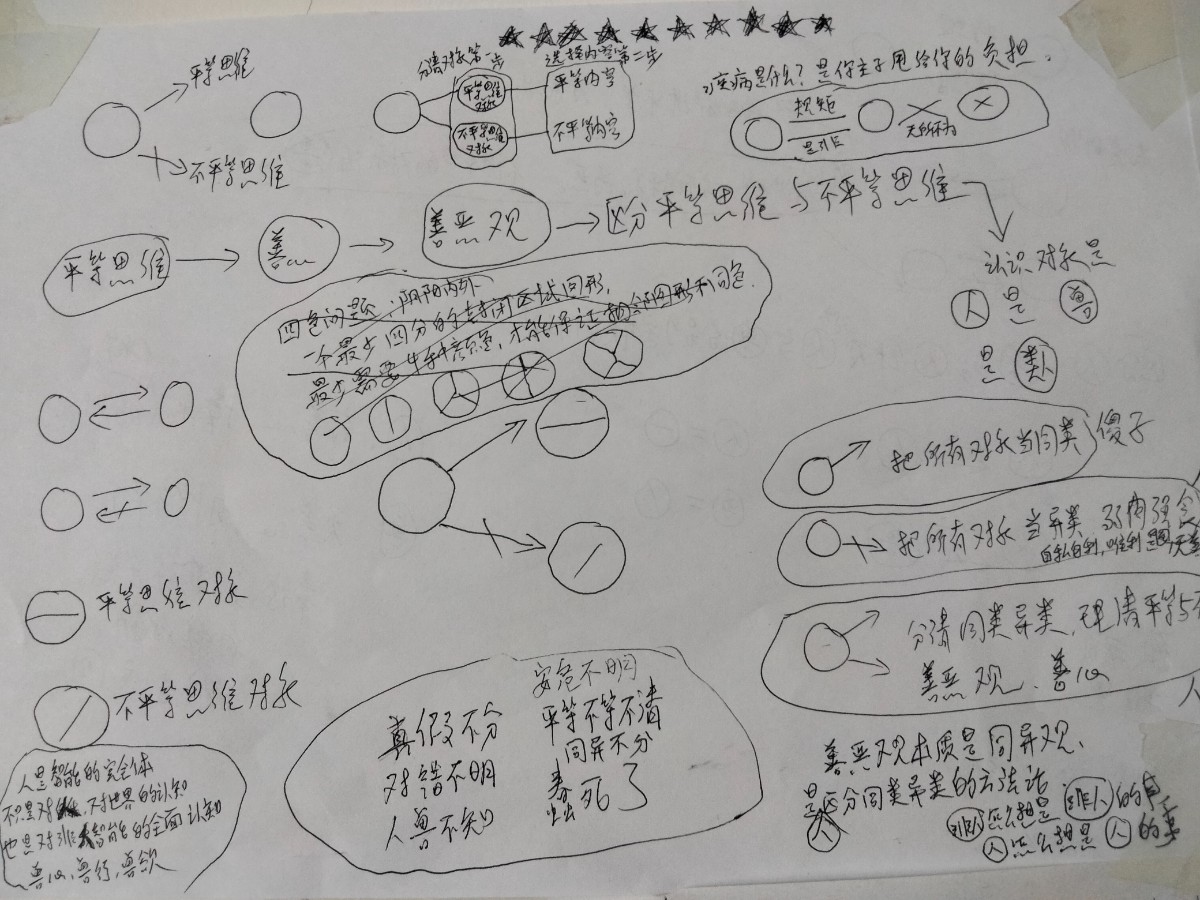 平等思维
不平等思维
分清对称第一步
选择内容第二步
平等思维
对称
不平等思维
对称
平等内容
不平等内容
疾病是什么？是你主子甩给你的负担.
规矩
是非
无所不为
平等思维
善心
善恶观
区分平等思维与不平等思维
认识对称是
人是兽
是类人
四色问题:阴阳内外、
一个最少四分的封闭区域图形,
最少需要 种颜色,才能保证相邻图形不同色.
把所有对称当同类
傻子
把所有对称当异类
弱肉强食
自私自利,唯利是图
分清同类异类,理清平等与不
善恶观、善心
人
平等思维对称
不平等思维对称
人是智能的完全体
不只是对 、对世界的认知
也是对非 智能的全面认知
兽心,兽行,兽欲
真假不分
对错不明
人兽不知
安危不明
平等不等不清
同异不分
蠢死了
善恶观本质是同异观、
是区分同类异类的方法论
非人怎么想是非人的事
人怎么想是人的事